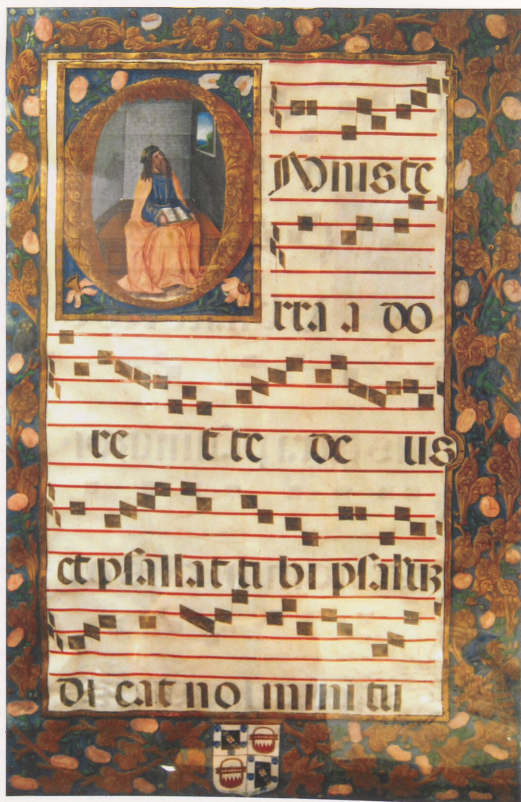 OMniste
rra a do
re t te de us
et psallat ti bi
di cat no mini tu